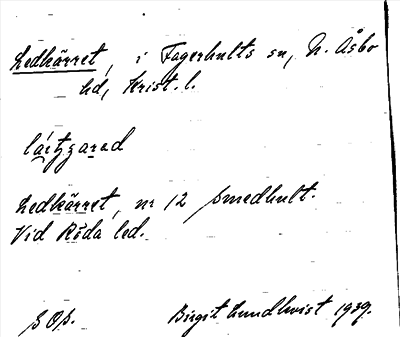 Ledkärret, i Fagerhults sn, N. Åsbo
hd, Krist. l.
Ledkärret, nr 12 Smedhult.
Vid Röda led.
S.O.S. Birgit Lundkvist 1939.